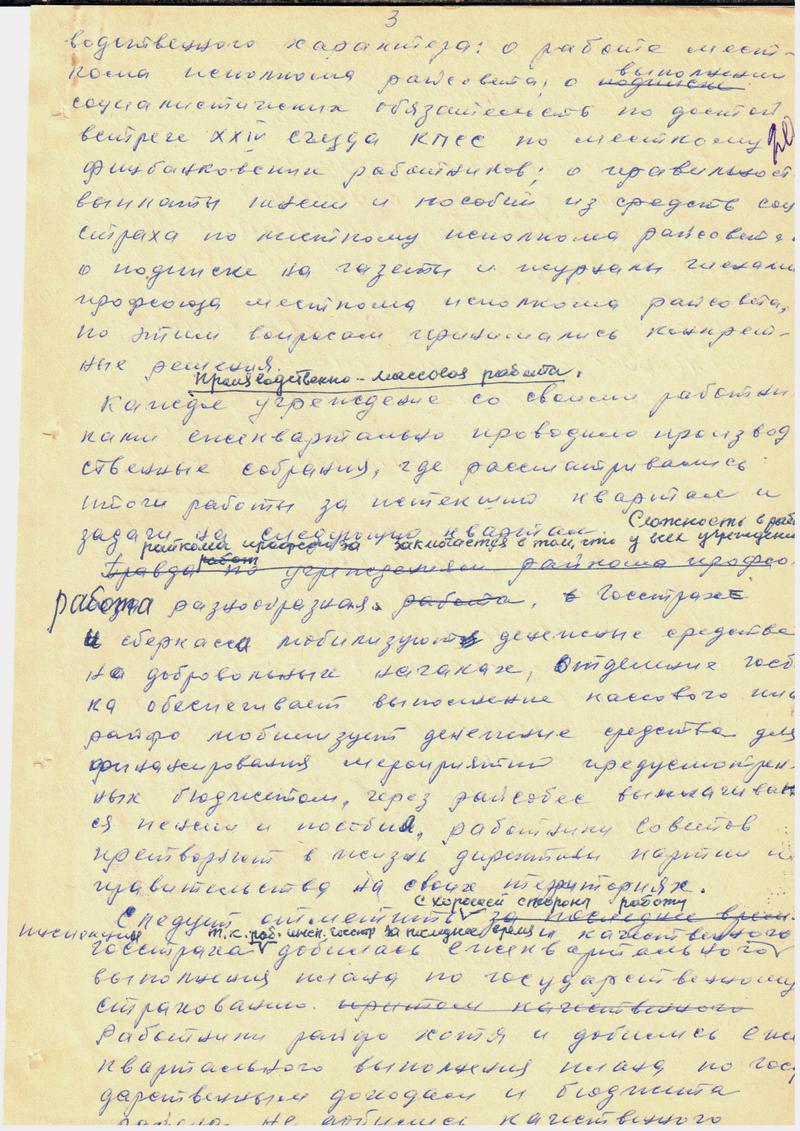 3
водственного характера: о работе мест-
кома исполкома райсовета; о подписке выполнении
социалистических обязательств по достой
встрече XXIV съезда КПСС по местному
20
финбанковских работников; о правильност
выплаты пенсии и пособий из средств соц
страха по местному исполкома райсовета.
о подписке на газеты и журналы членами
профсоюза месткома исполкома райсовета,
по этим вопросам принимались конкрет-
ные решения.
Производственно-массовая работа.
Каждое учреждение со своими работни
ками ежеквартально проводило производ
ственные собрания, где рассматривались
итоги работы за истекший квартал и
задачи на следующий квартал. Сложность в раб
райкома профсоюза заключается в том, что у всех учреждени
Правда по работ учреждениям райкома профсо
работа разнообразная. работа, в Госстрахе
и сберкасса мобилизуют денежные средства
на добровольных началах, Отделение госб
ка обеспечивает выполнение кассового пла
райфо мобилизует денежные средства для
финансирования мероприятий предусмотрен-
ных бюджетом, через райсобес выплачивают
ся пенсии и пособия, работники Советов
претворяют в жизнь директивы партии и
правительства на своих территориях.
с хорошей стороны работу
Следует отметить за последнее врем
инспекции т.к. раб. инсп. госстр за последнее время и качественного
госстраха добилась ежеквартального
выполнения плана по государственному
страхованию. притом качественного
Работники райфо хотя и добились еже
квартального выполнения плана по госу
дарственным доходам и бюджета
района не добились качественного